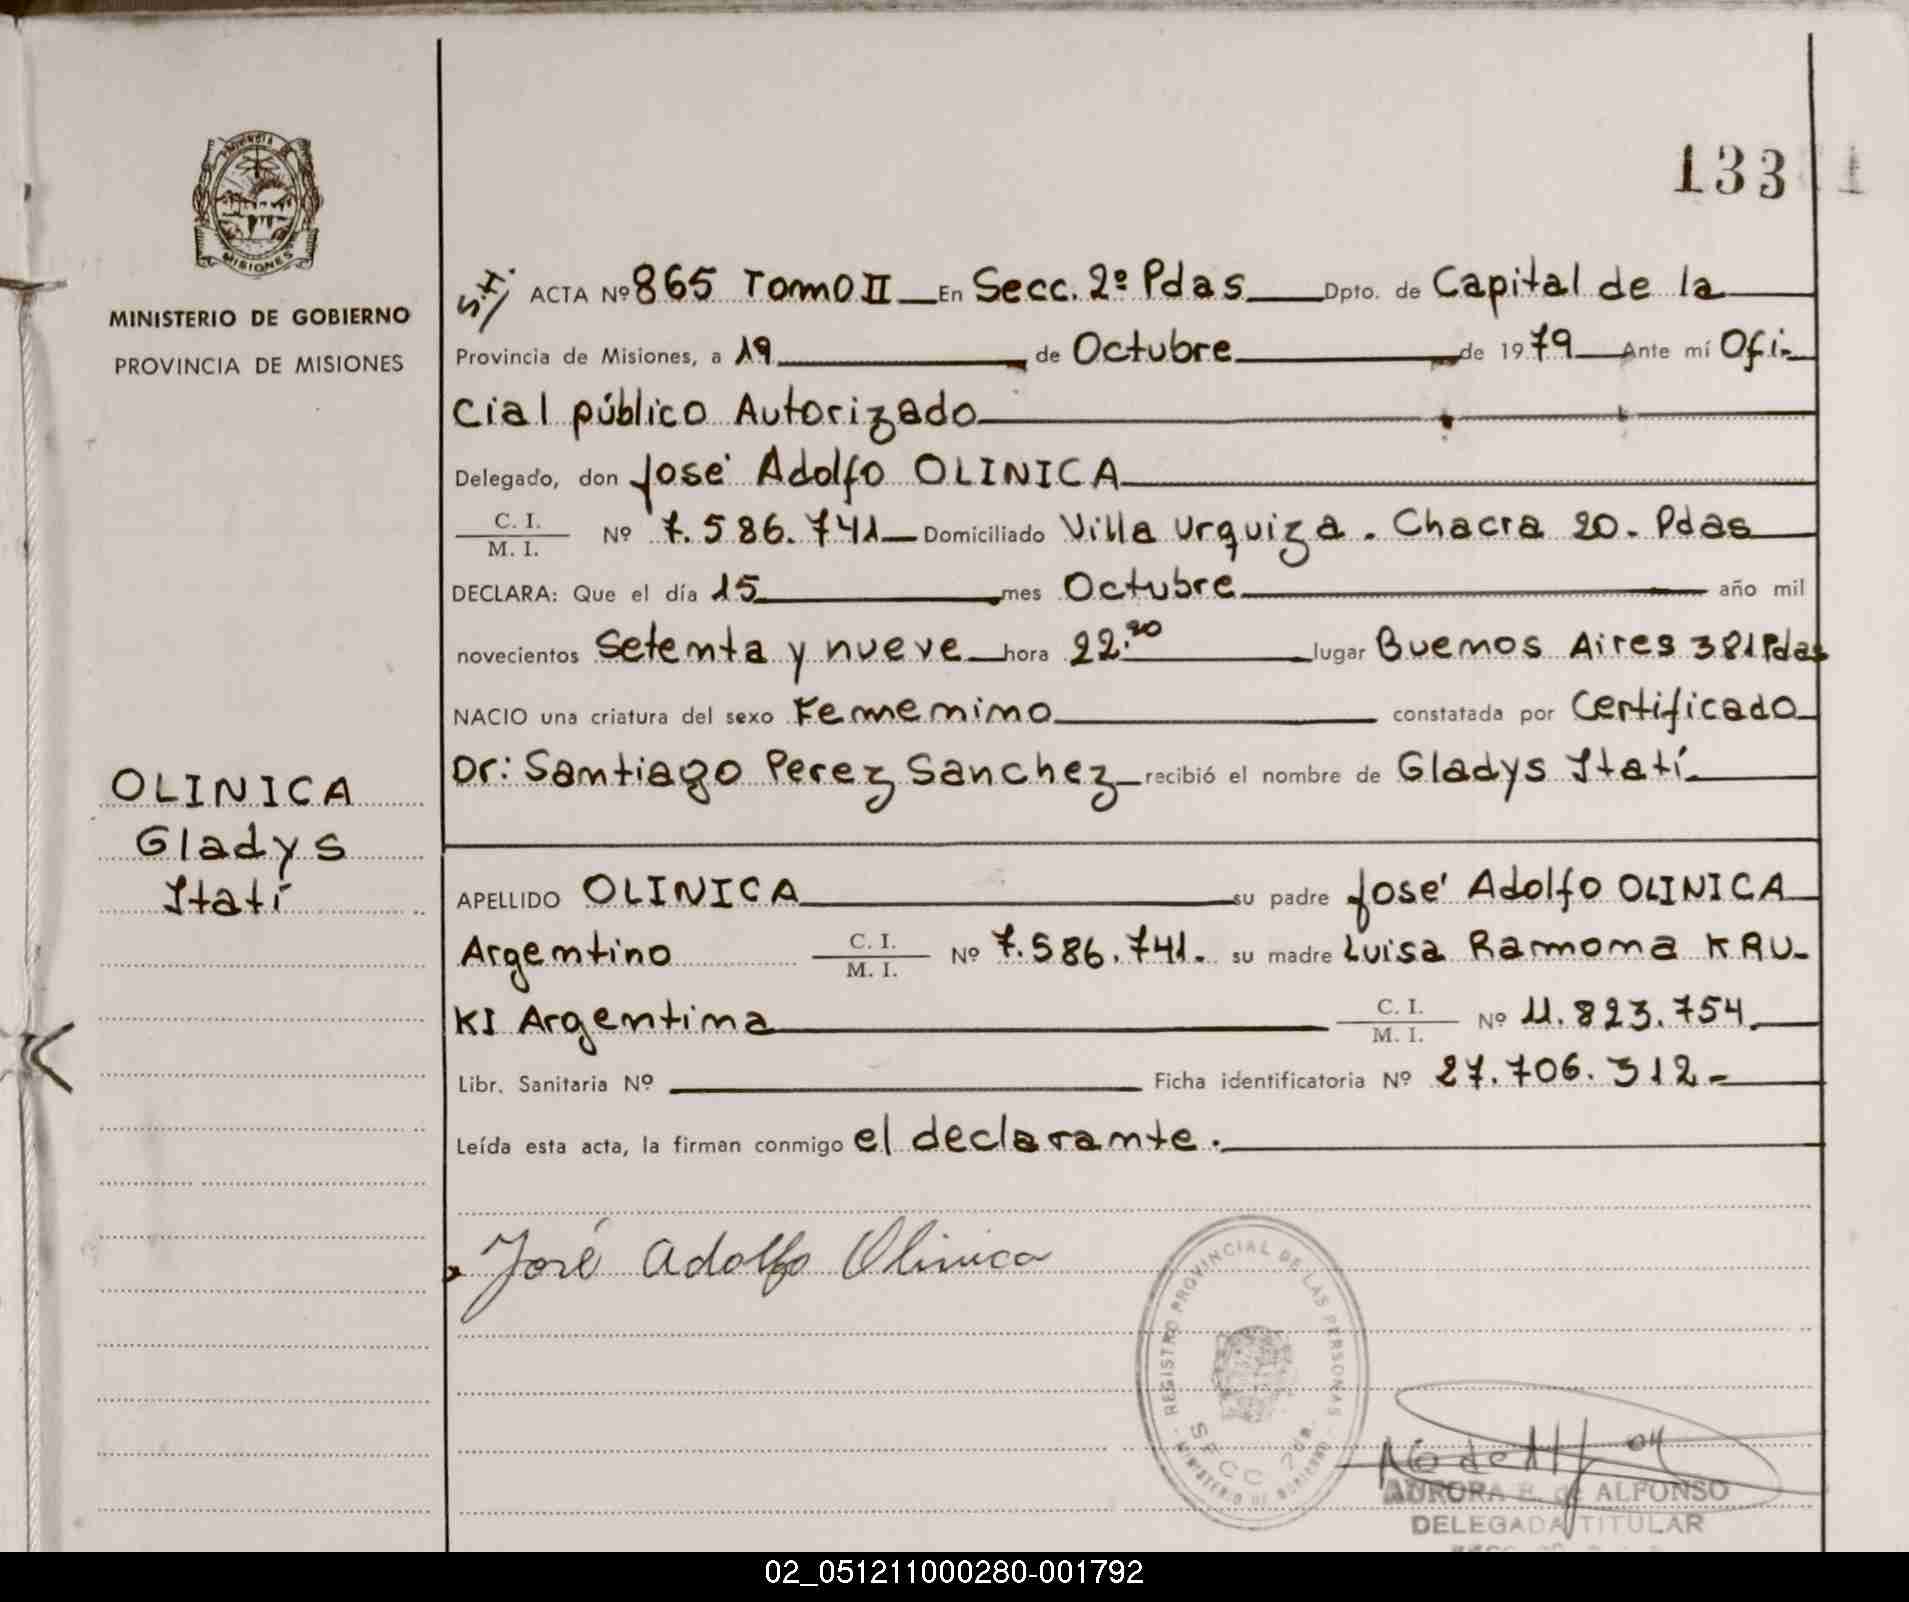 133
PROVINCIA DE
MISIONES
MINISTERIO DE GOBIERNO
PROVINCIA DE MISIONES
OLINICA
Gladys
Itatí
ACTA Nº 865 Tomo II En Secc. 2º Pdas Dpto. de Capital de la
Provincia de Misiones, a 19 de Octubre de 1979 Ante mí Ofi-
cial público Autorizado
Delegado, don José Adolfo OLINICA
C. I.
M. I. Nº 7.586.741 Domiciliado Villa Urquiza. Chacra 20. Pdas
DECLARA: Que el día 15 mes Octubre año mil
novecientos Setenta y nueve hora 22.20 lugar Buenos Aires 381 Pdas
NACIO una criatura del sexo Femenino constatada por Certificado
Dr: Santiago Perez Sanchez recibió el nombre de Gladys Itatí
APELLIDO OLINICA su padre José Adolfo OLINICA
Argentino C. I. M. I. Nº 7.586.741. su madre Luisa Ramona KRU-
KI Argentina C. I. M. I. Nº 11.823.754.
Libr. Sanitaria Nº Ficha identificatoria Nº 27.706.312-
Leída esta acta, la firman conmigo el declarante.
José Adolfo Olinica
REGISTRO PROVINCIAL DE LAS PERSONAS
SECC 2da.
MINISTERIO DE GOBIERNO
AURORA de ALFONSO
DELEGADA TITULAR
02_051211000280-001792